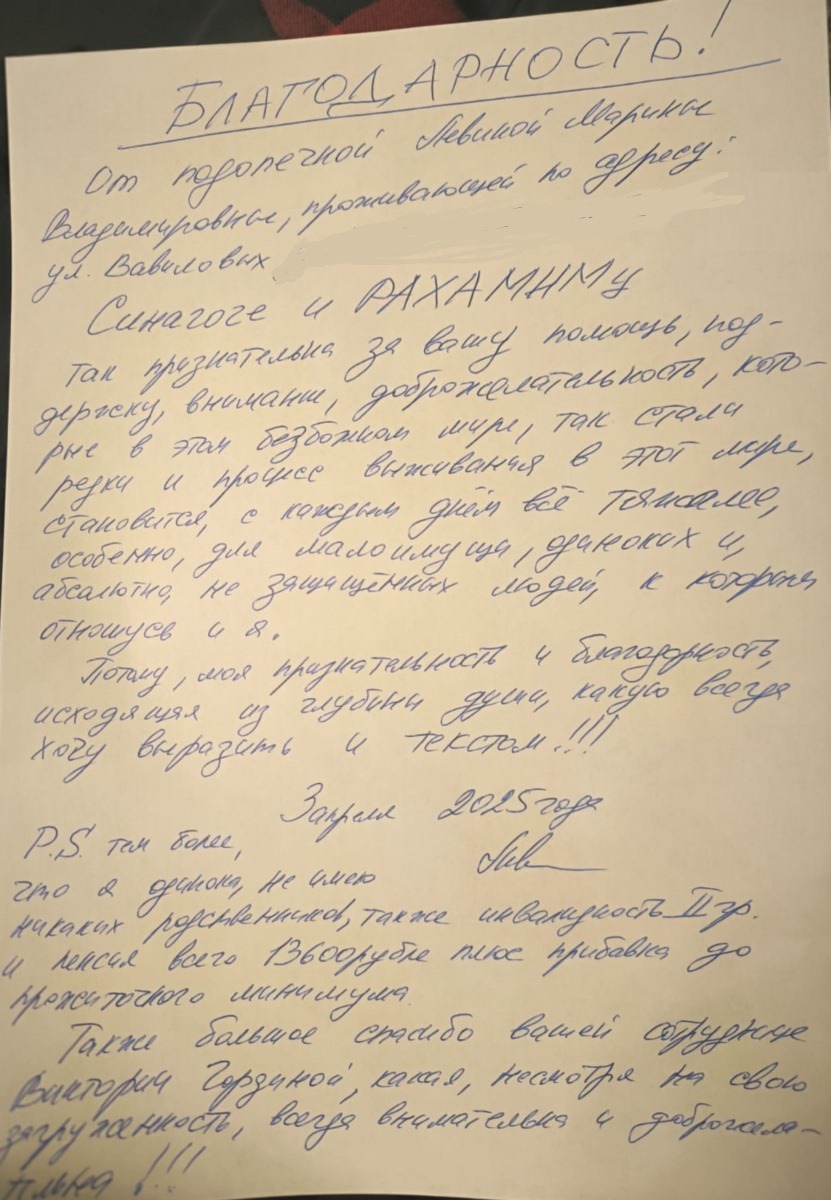 БЛАГОДАРНОСТЬ!
От подопечной Левиной Марины
Владимировны, проживающей по адресу:
ул. Вавиловых
Синагоге и РАХАМИМу
так признательна за вашу помощь, под-
держку, внимание, доброжелательность, кото-
рые в этом безбожном мире, так стали
редки и процесс выживания в этот мире,
становится, с каждым днём всё тяжелее,
особенно, для малоимущих, одиноких и,
абсолютно, не защищённых людей, к которым
отношусь и я.
Потому, моя признательность и благодарность,
исходящая из глубины души, какую всегда
хочу выразить и текстом!!!
3 апреля 2025 года
P.S. тем более,
что я одинока, не имею
никаких родственников, также инвалидность II гр.
и пенсия всего 13600 рубле плюс прибавка до
прожиточного минимума.
Также большое спасибо вашей сотруднице
Виктории Гординой, какая, несмотря на свою
загруженность, всегда внимательна и доброжела-
тельна!!!